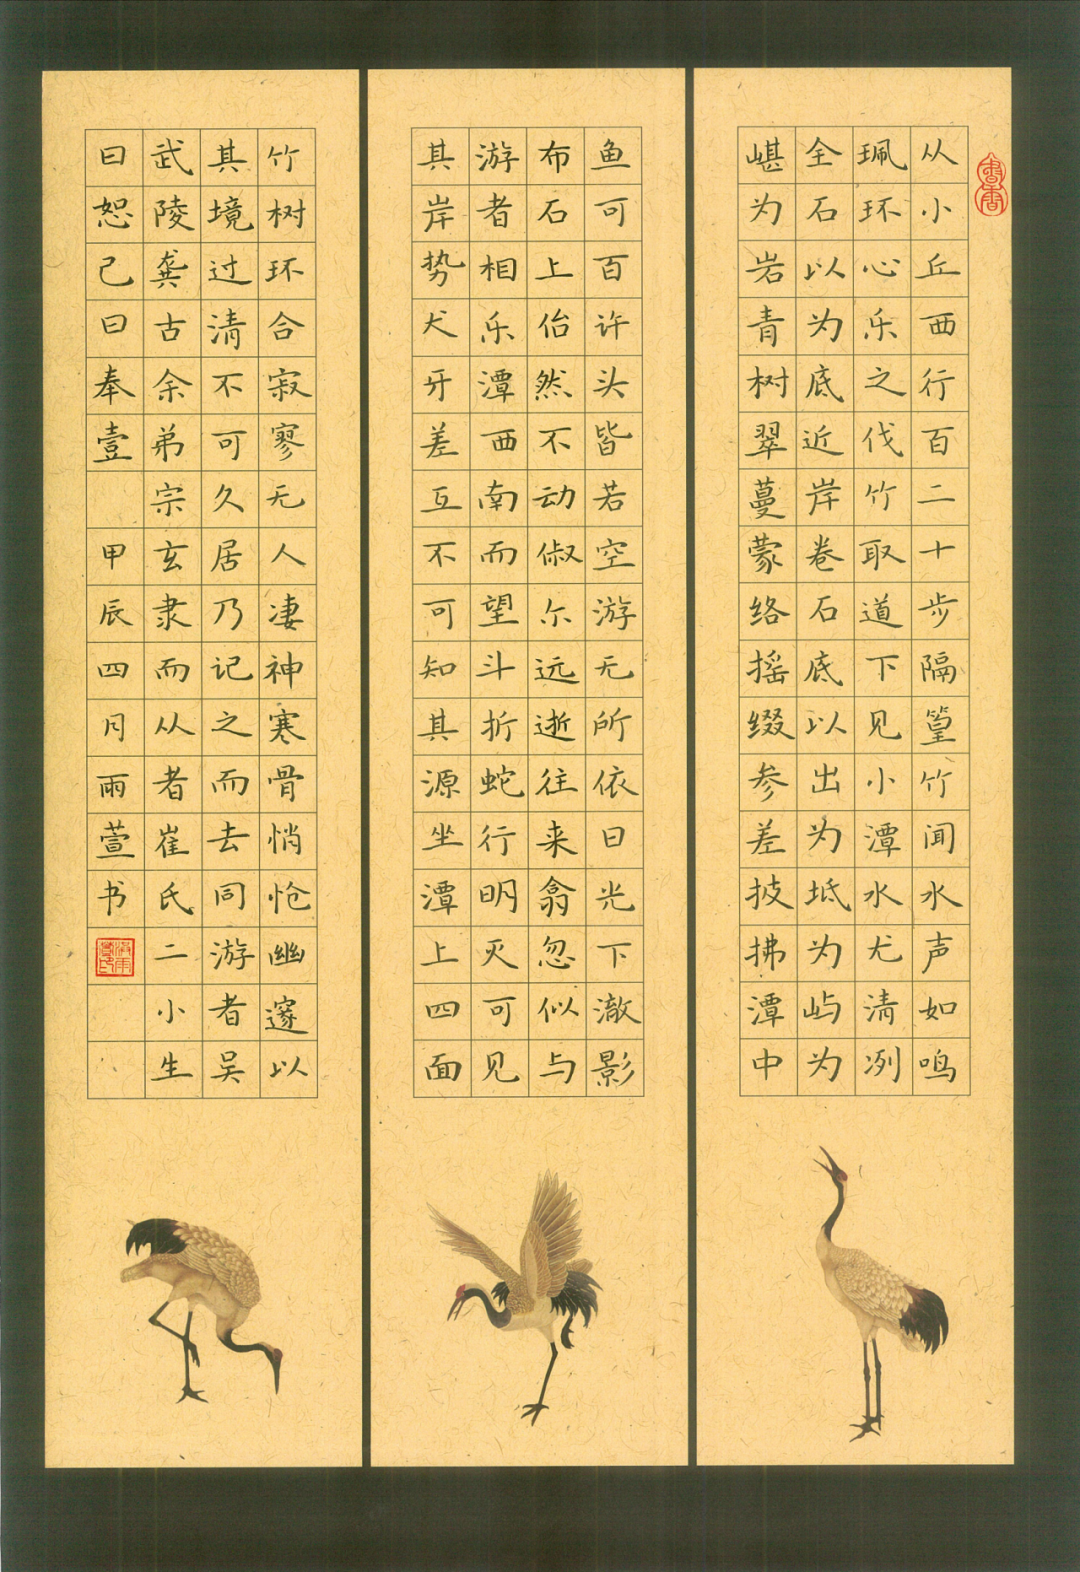 書香
从小丘西行百二十步隔篁竹闻水声如鸣
珮环心乐之伐竹取道下见小潭水尤清冽
全石以为底近岸卷石底以出为坻为屿为
嵁为岩青树翠蔓蒙络摇缀参差披拂潭中
鱼可百许头皆若空游无所依日光下澈影
布石上佁然不动俶尔远逝往来翕忽似与
游者相乐潭西南而望斗折蛇行明灭可见
其岸势犬牙差互不可知其源坐潭上四面
竹树环合寂寥无人凄神寒骨悄怆幽邃以
其境过清不可久居乃记之而去同游者吴
武陵龚古余弟宗玄隶而从者崔氏二小生
曰恕己曰奉壹 甲辰四月雨萱书